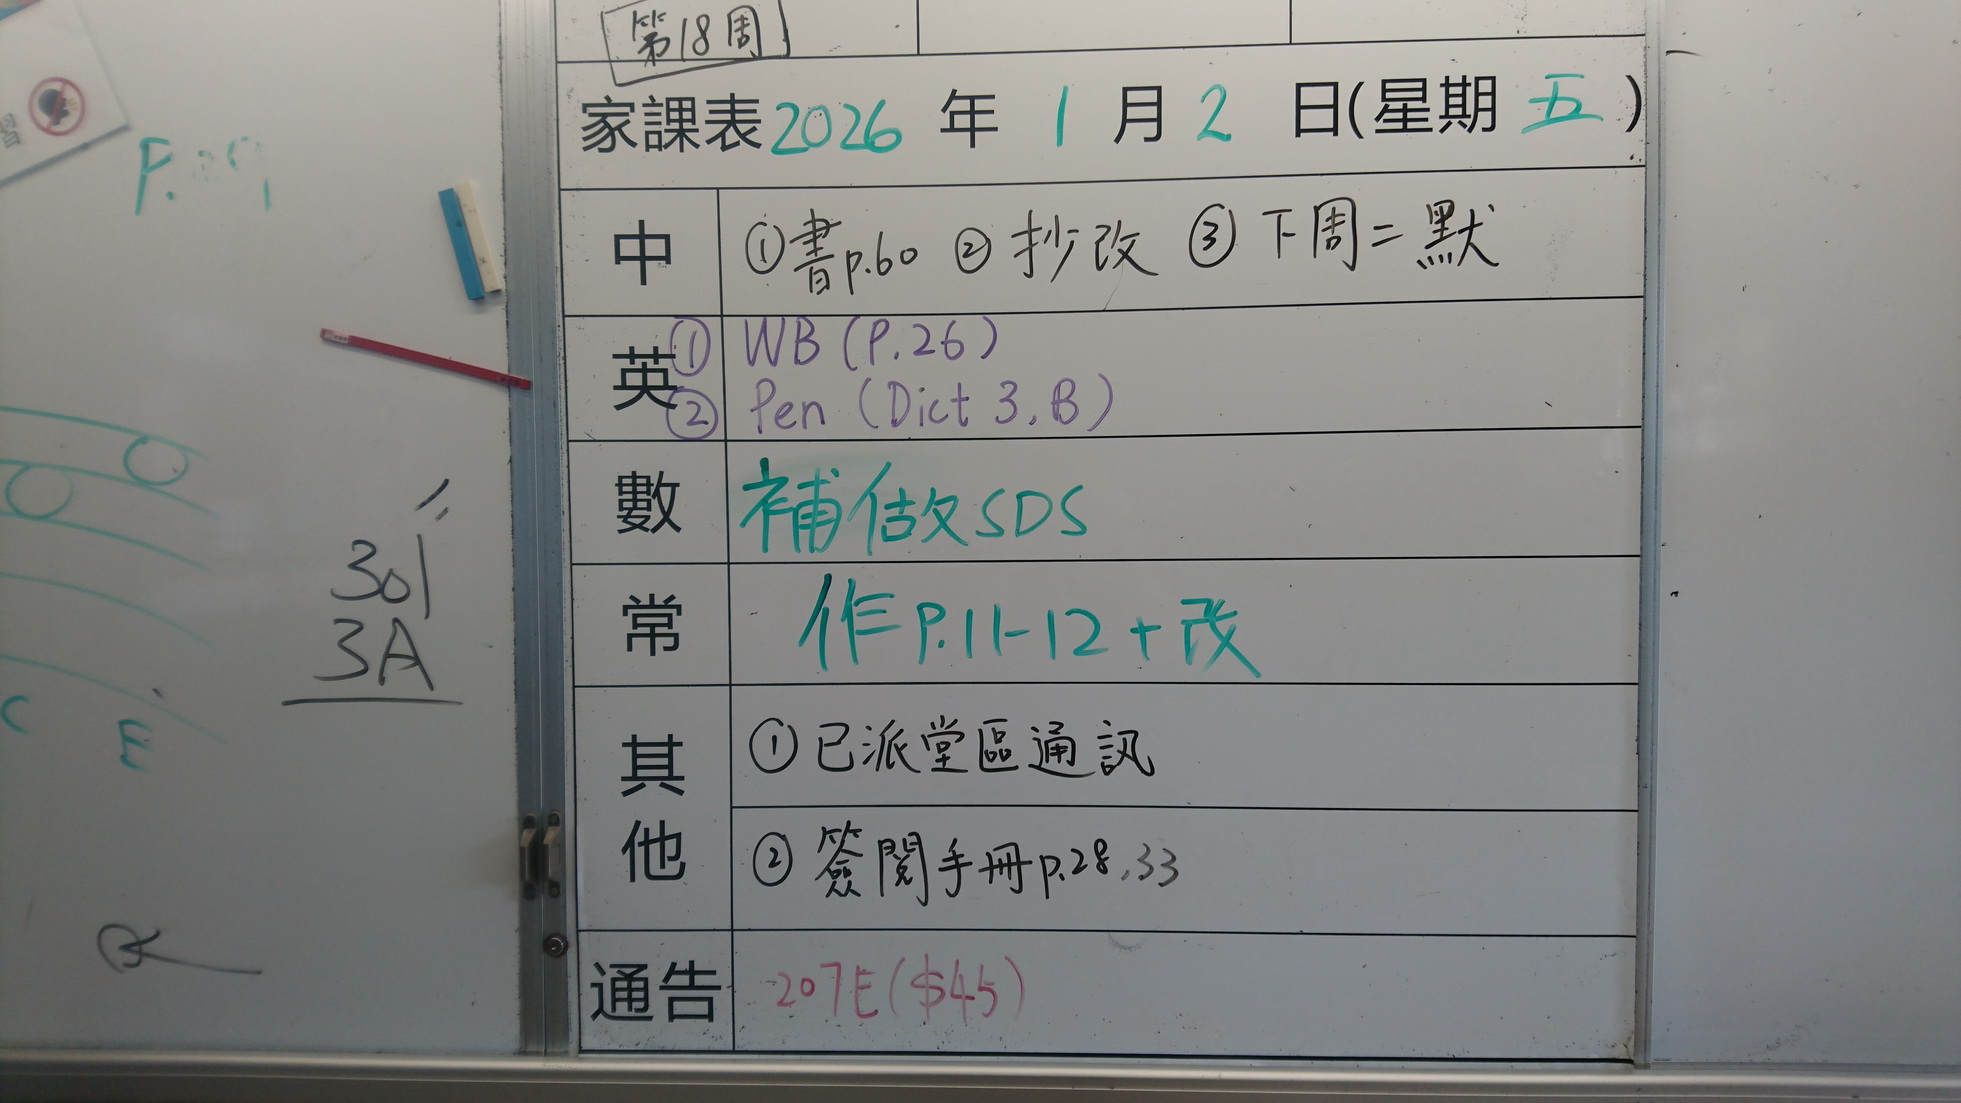 第18周
家課表2026年1月2日(星期五)
習
中 ①書p.60 ②抄改 ③下周二默
英 ① WB (P.26)
② Pen (Dict 3, B)
數 補做SDS
常 作P.11-12+改
301
3A
C E
其他 ①已派堂區通訊
②簽閱手冊p.28,33
通告 207E($45)